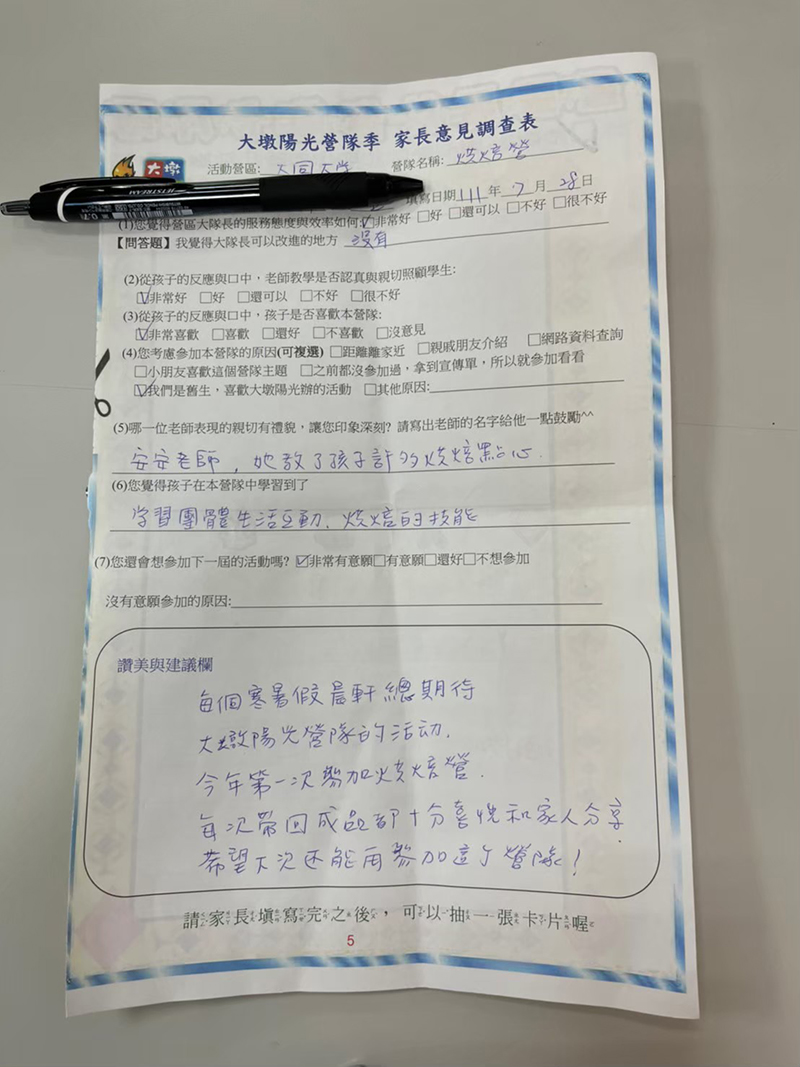 大墩陽光營隊季 家長意見調查表
大墩 活動營區: 大同大學 營隊名稱: 烘焙營
填寫日期111年 7月 28日
(1)您覺得營區大隊長的服務態度與效率如何:☑非常好□好□還可以□不好□很不好
【問答題】我覺得大隊長可以改進的地方 沒有
(2)從孩子的反應與口中,老師教學是否認真與親切照顧學生:
☑非常好 □好 □還可以 □不好 □很不好
(3)從孩子的反應與口中,孩子是否喜歡本營隊:
☑非常喜歡 □喜歡 □還好 □不喜歡 □沒意見
(4)您考慮參加本營隊的原因(可複選) □距離離家近 □親戚朋友介紹 □網路資料查詢
□小朋友喜歡這個營隊主題 □之前都沒參加過,拿到宣傳單,所以就參加看看
☑我們是舊生,喜歡大墩陽光辦的活動 □其他原因:
(5)哪一位老師表現的親切有禮貌,讓您印象深刻? 請寫出老師的名字給他一點鼓勵^^
安安老師,她教了孩子許多烘焙點心.
(6)您覺得孩子在本營隊中學習到了
学習團體生活互動.烘焙的技能
(7)您還會想參加下一屆的活動嗎? ☑非常有意願□有意願□還好□不想參加
沒有意願參加的原因:
讚美與建議欄
每個寒暑假晨軒總期待
大墩陽光營隊的活动.
今年第一次參加烘焙營.
每次帶回成品都十分喜悅和家人分享.
希望下次还能再參加這个營隊!
請家長填寫完之後,可以抽一張卡片喔
5
JETSTREAM
0.7